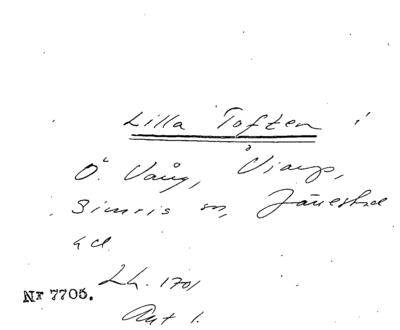 Lilla Toften
Ö. Vång,
Simris sn, Järrestad
hd
Lh. 1701
Akt 1.
Nr 7705.